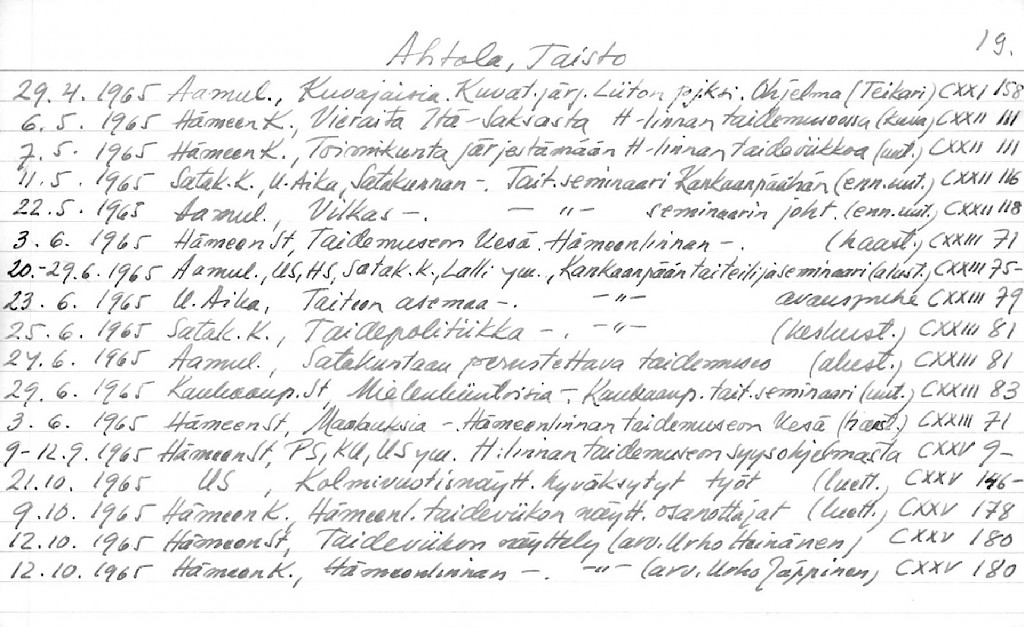 19.
Ahtola, Taisto
29.4.1965 Aamul., Kuvajaisia. Kuvat.järj. Liiton pj:ksi. Ohjelma (Teikari) CXXI 158
6.5.1965 HämeenK., Vieraita Itä-Saksasta H-linnan taidemuseossa (kuva) CXXII 111
7.5.1965 HämeenK., Toimikunta järjestämään H-linnan taideviikkoa (uut.) CXXII 111
11.5.1965 Satak.K., U.Aika, Satakunnan -. Tait.seminaari Kankaanpäähän (enn.uut.) CXXII 116
22.5.1965 Aamul., Vilkas -. -"- seminaarin joht. (enn.uut.) CXXII 118
3.6.1965 HämeenSt, Taidemuseon kesä. Hämeenlinnan -. (haast.) CXXIII 71
20.-29.6.1965 Aamul., US, HS, Satak.K., Lalli ym., Kankaanpään taiteilijaseminaari (alust.) CXXIII 75-
23.6.1965 U.Aika, Taiteen asemaa -. -"- avauspuhe CXXIII 79
25.6.1965 Satak.K., Taidepolitiikka -. -"- (keskust.) CXXIII 81
27.6.1965 Aamul., Satakuntaan perustettava taidemuseo (alust.) CXXIII 81
29.6.1965 Kankaanp.St, Mielenkiintoisia -. Kankaanp. tait.seminaari (uut.) CXXIII 83
3.6.1965 HämeenSt, Maalauksia - Hämeenlinnan taidemuseon kesä (haast.) CXXIII 71
9-12.9.1965 HämeenSt, PS, KU, US ym. H:linnan taidemuseon syysohjelmasta CXXV 9-
21.10.1965 US, Kolmivuotisnäytt. hyväksytyt työt (luett.) CXXV 146-
9.10.1965 HämeenK., Hämeenl. taideviikon näytt. osanottajat (luett.) CXXV 178
12.10.1965 HämeenSt, Taideviikon näyttely (arv. Urho Heinänen) CXXV 180
12.10.1965 HämeenK., Hämeenlinnan -. -"- (arv. Urho Jäppinen) CXXV 180